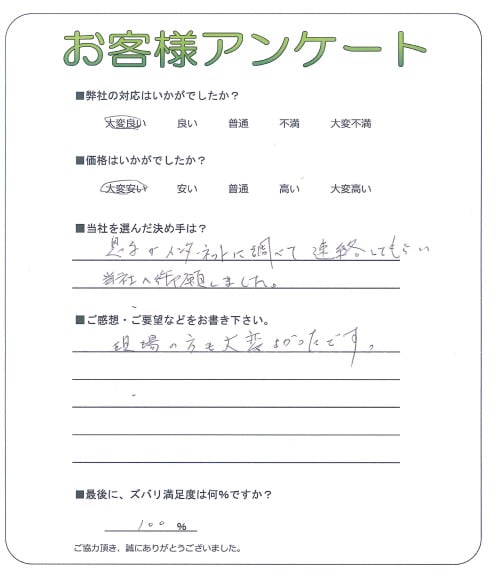 お客様アンケート
■弊社の対応はいかがでしたか？
大変良い 良い 普通 不満 大変不満
■価格はいかがでしたか？
大変安い 安い 普通 高い 大変高い
■当社を選んだ決め手は？
息子がインターネットに調べて連絡してもらい
当社へ御願しました。
■ご感想・ご要望などをお書き下さい。
現場の方も大変よかったです。
■最後に、ズバリ満足度は何%ですか？
100 %
ご協力頂き、誠にありがとうございました。